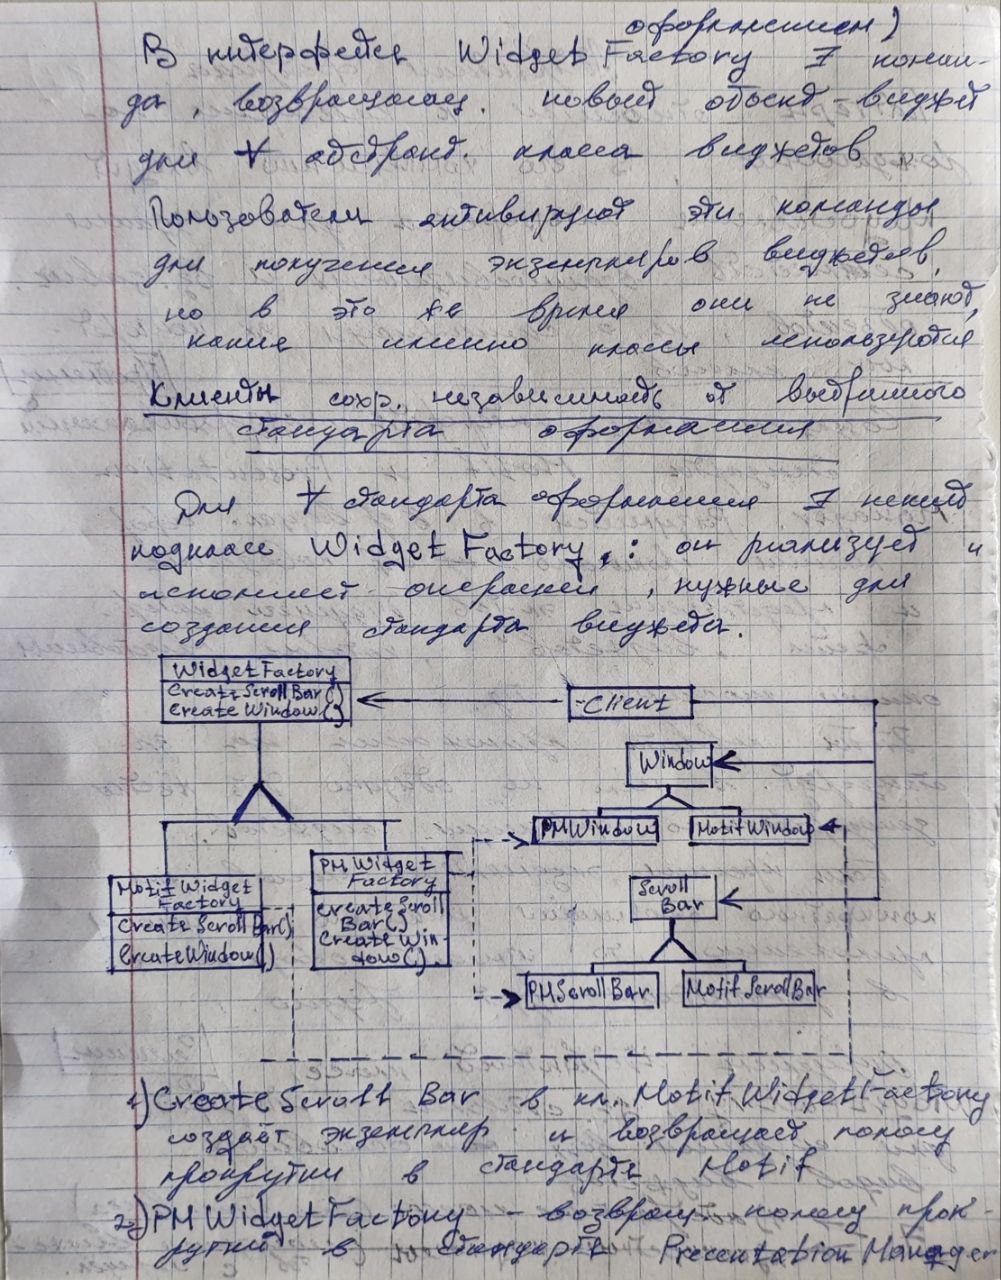 оформлением)
В интерфейсе Widget Factory ∃ коман-
да, возвращающ. новый объект-виджет
для ∀ абстракт. класса виджетов
Пользователи активируют эти команды
для получения экземпляров виджетов,
но в это же время они не знают,
какие именно классы используются
Клиенты сохр. независимость от выбранного
стандарта оформления
Для ∀ стандарта оформления ∃ некий
подкласс Widget Factory,: он реализует и
исполняет операции, нужные для
создания стандарта виджета.
WidgetFactory
Create Scroll Bar()
Create Window()
Client
Window
PMWindow
MotifWindow
Motif Widget
Factory
Create Scroll Bar()
CreateWindow()
PM Widget
Factory
Create Scroll
Bar()
Create Win-
dow()
Scroll
Bar
PMScrollBar
Motif ScrollBar
1) Create Scroll Bar в кл. Motif WidgetFactory
создаёт экземпляр и возвращает полосу
прокрутки в стандарте Motif
2) PM WidgetFactory - возвращ. полосу прок-
рутки в стандарте Presentation Manager